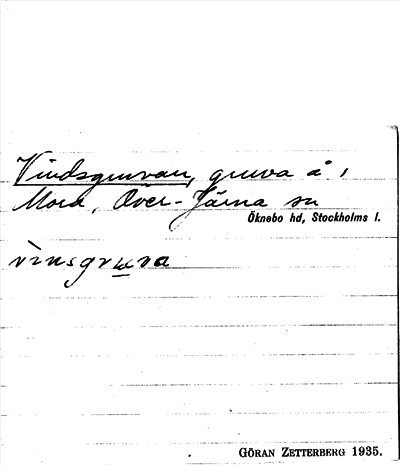 Vindsgruvan, gruva å 1
Mora, Över-Järna sn
Öknebo hd, Stockholms l.
vinsgruva
GÖRAN ZETTERBERG 1935.